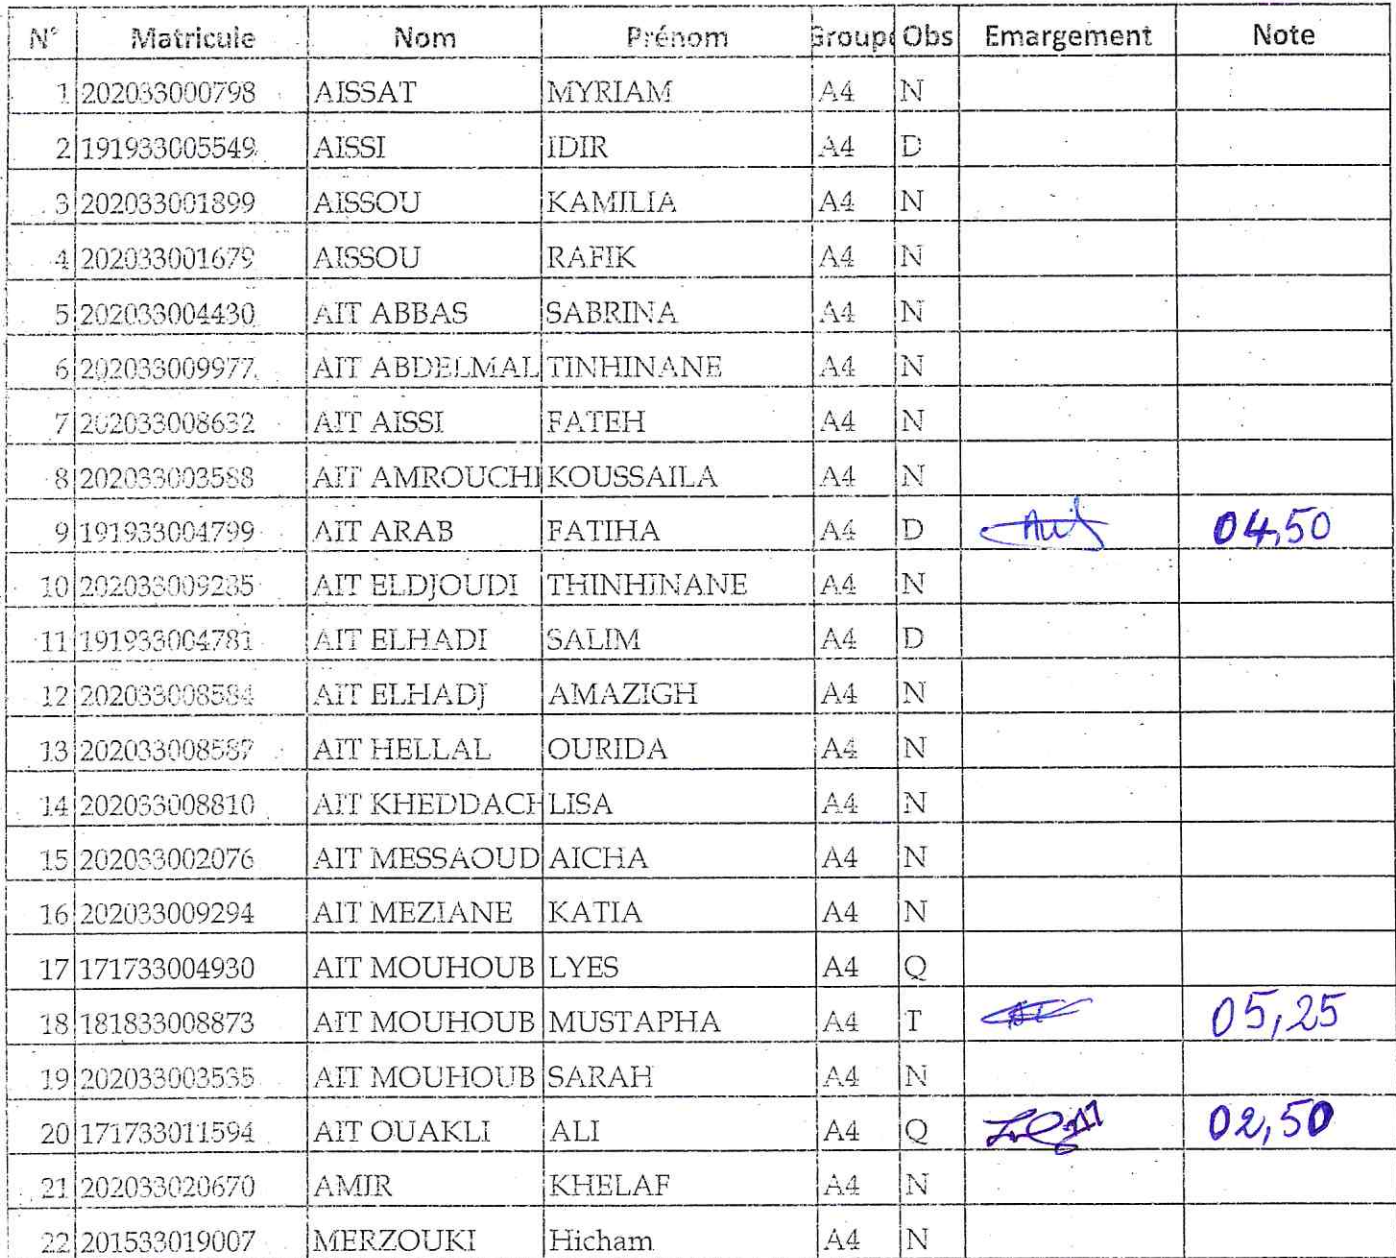 N° Matricule Nom Prénom Groupe Obs Emargement Note
1 202033000798 AISSAT MYRIAM A4 N
2 191933005549 AISSI IDIR A4 D
3 202033001899 AISSOU KAMILIA A4 N
4 202033001679 AISSOU RAFIK A4 N
5 202033004430 AIT ABBAS SABRINA A4 N
6 202033009977 AIT ABDELMAL TINHINANE A4 N
7 202033008632 AIT AISSI FATEH A4 N
8 202033003588 AIT AMROUCHE KOUSSAILA A4 N
9 191933004799 AIT ARAB FATIHA A4 D 04,50
10 202033009285 AIT ELDJOUDI THINHINANE A4 N
11 191933004781 AIT ELHADI SALIM A4 D
12 202033008584 AIT ELHADJ AMAZIGH A4 N
13 202033008587 AIT HELLAL OURIDA A4 N
14 202033008810 AIT KHEDDACH LISA A4 N
15 202033002076 AIT MESSAOUD AICHA A4 N
16 202033009294 AIT MEZIANE KATIA A4 N
17 171733004930 AIT MOUHOUB LYES A4 Q
18 181833008873 AIT MOUHOUB MUSTAPHA A4 T 05,25
19 202033003535 AIT MOUHOUB SARAH A4 N
20 171733011594 AIT OUAKLI ALI A4 Q 02,50
21 202033020670 AMIR KHELAF A4 N
22 201533019007 MERZOUKI Hicham A4 N